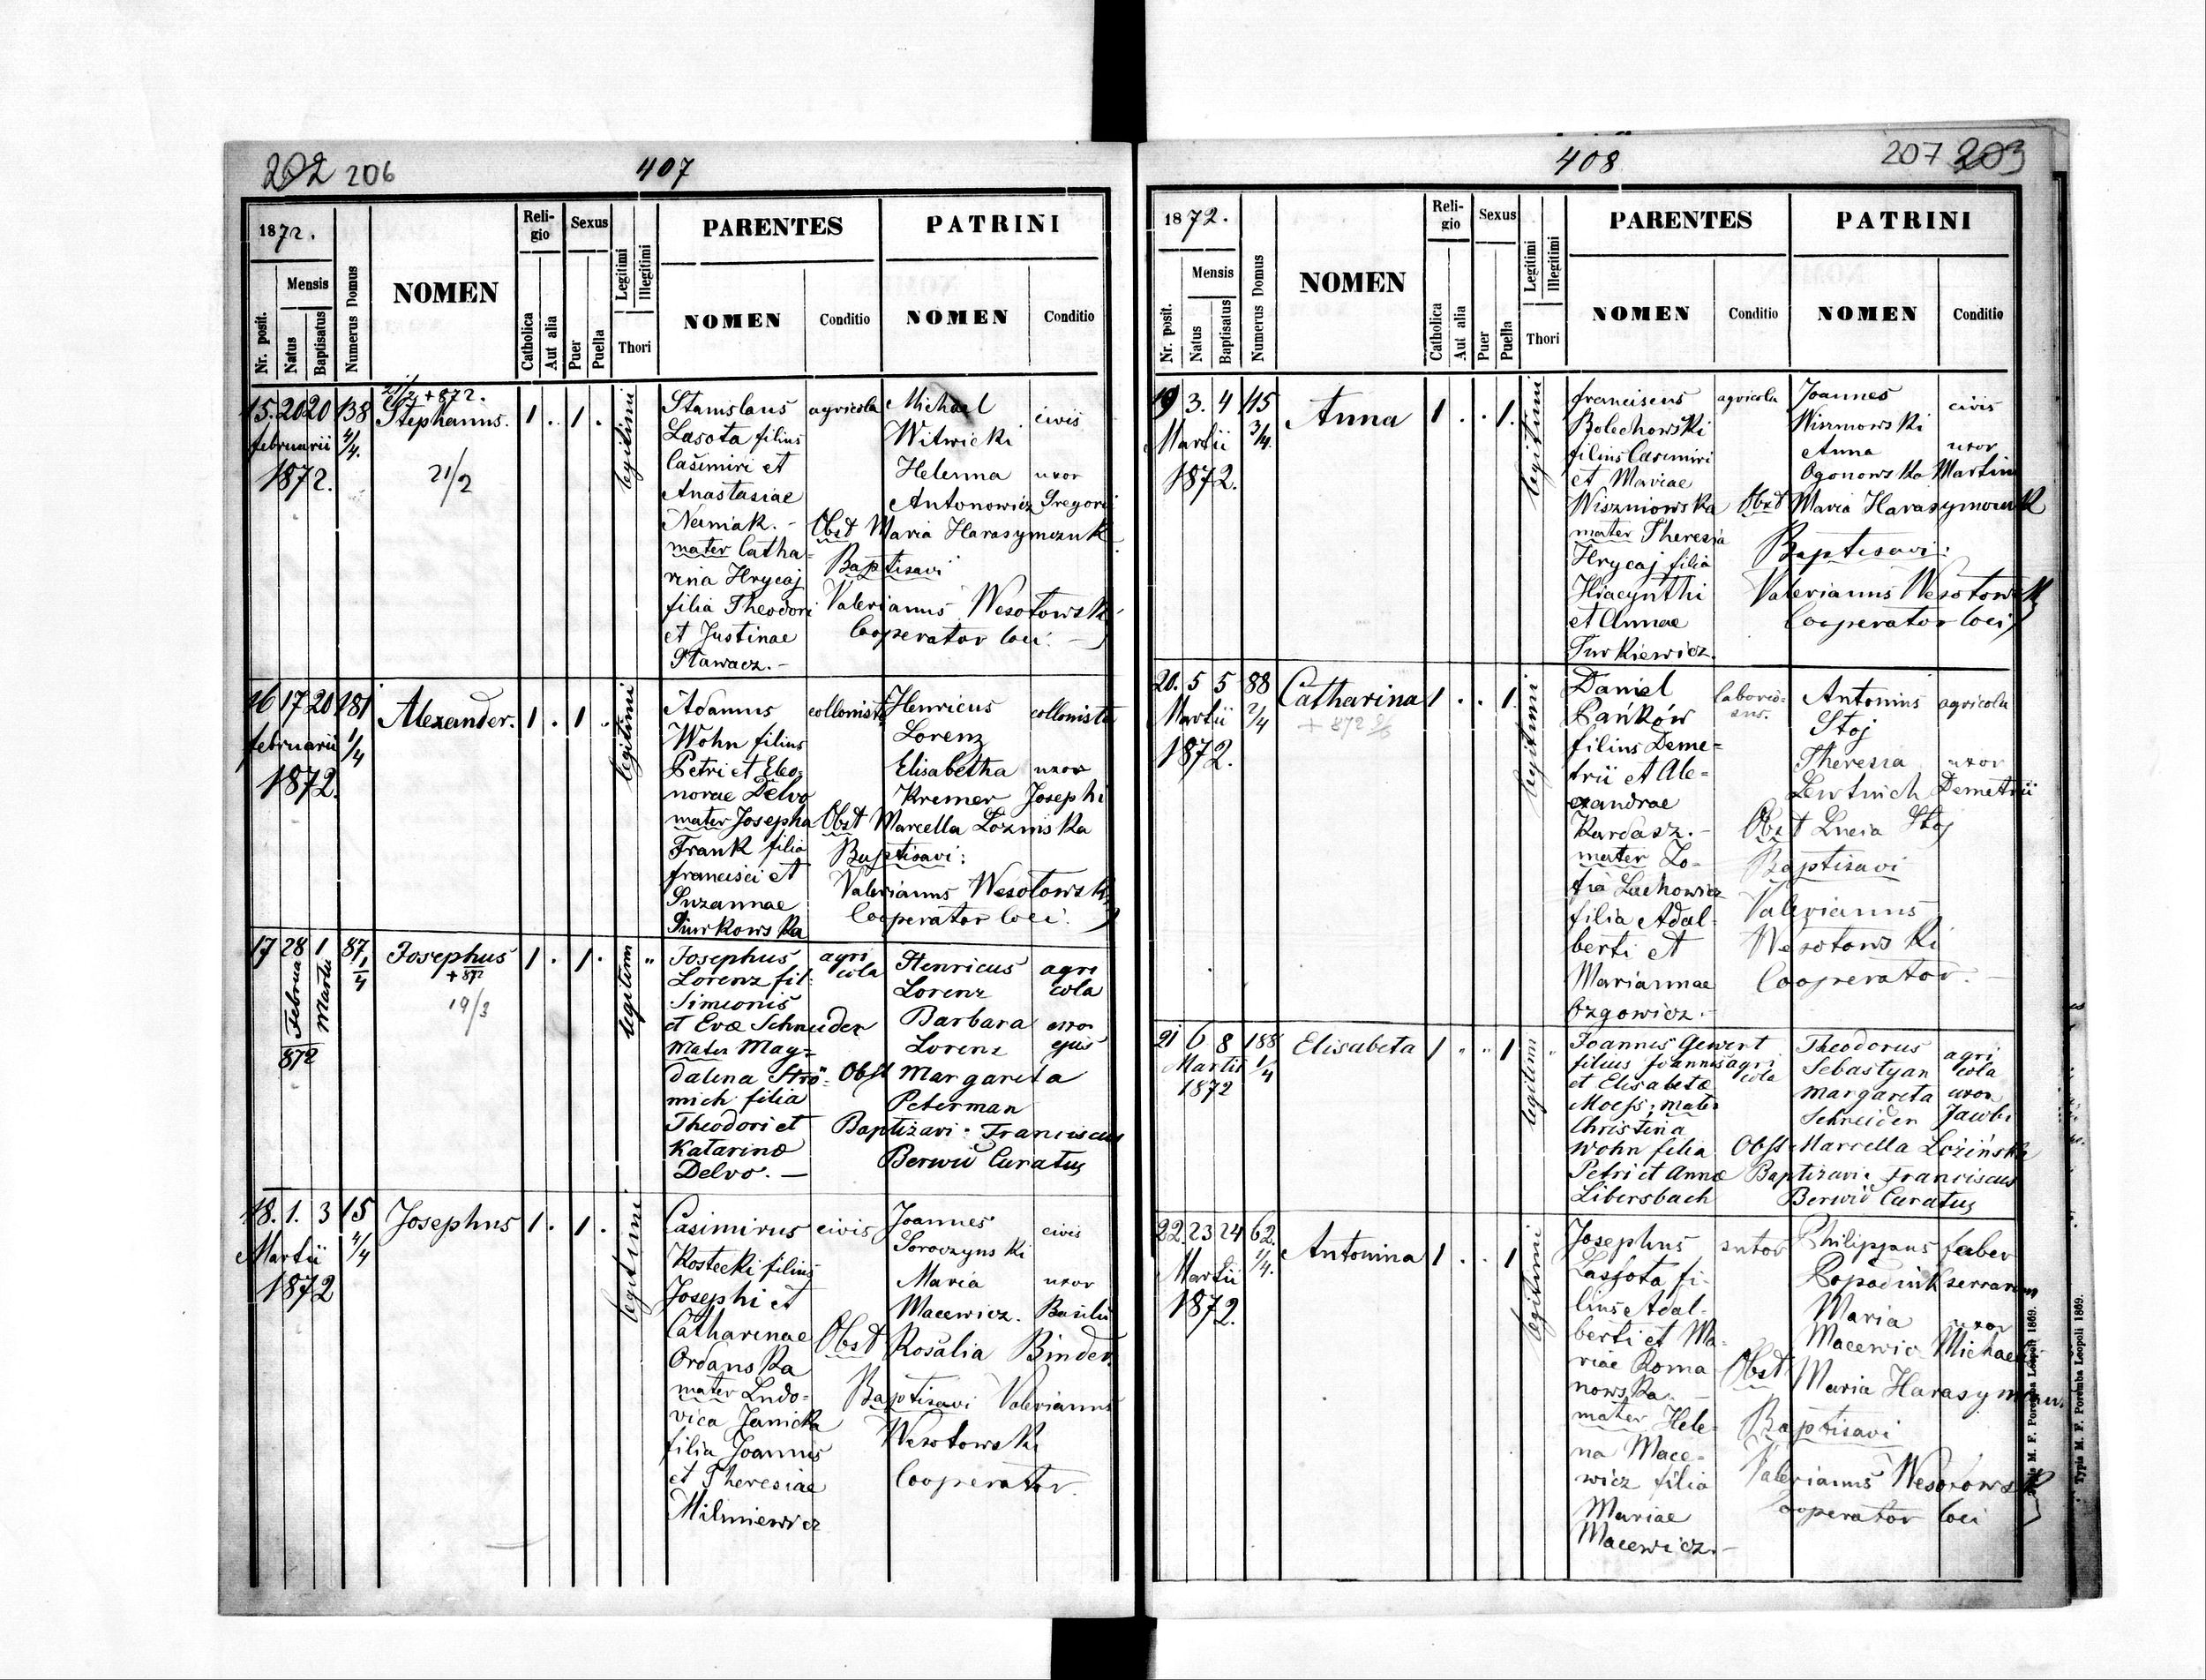 202 206
407
1872.
Nr. posit.
Mensis
Natus
Baptisatus
Numerus Domus
NOMEN
Reli-
gio
Catholica
Aut alia
Sexus
Puer
Puella
Legitimi
Illegitimi
Thori
PARENTES
NOMEN
Conditio
PATRINI
NOMEN
Conditio
21/2 +872.
15. 20 20 138
februarii 4/4.
1872.
Stephanus.
21/2
1 . 1 .
legitimi
Stanislaus
Lasota filius
Casimiri et
Anastasiae
Namiak. -
mater Catha-
rina Hrycaj
filia Theodori
et Justinae
Stawacz. -
agricola
Michael
Witwicki
Helenna
Antonowicz
civis
uxor
Gregori
Obst Maria Harasymczuk
Baptisavi
Valerianus Wesołowski
Cooperator loci. -
16 17 20 181
februarii 1/4
1872.
Alexander.
1 . 1 .
legitimi
Adamus
Wohn filius
Petri et Eleo-
norae Delvo
mater Josepha
Frank filia
francisci et
Suzannae
Siwkowska
collonista
Henricus
Lorenz
Elisabetha
Kremer
collonista
uxor
Josephi
Obst Marcella Łozinska
Baptisavi:
Valerianus Wesołowski
Cooperator loci.
17 28 1 87
Februa
Martii
872
1/4
Josephus
+ 872
19/3
1 . 1 .
legitimi "
Josephus
Lorenz fil:
Simeonis
et Evæ Schneider
Mater Mag-
dalena Strö-
mich filia
Theodori et
Katarinæ
Delvo. —
agri
cola
Henricus
Lorenz
Barbara
Lorenz
agri
cola
uxor
ejus
Obst Margareta
Peterman
Baptizavi: Franciscus
Berwid Curatus
18. 1. 3 15
Martii 4/4
1872
Josephus
1 . 1 .
legitimi
Casimirus
Kostecki filius
Josephi et
Catharinae
Ordanska
mater Ludo-
vica Janicka
filia Joannis
et Theresiae
Milniewicz
civis
Joannes
Soroczynski
Maria
Macewicz.
civis
uxor
Basilii
Obst Rosalia Binder
Baptisavi Valerianus
Wesołowski
Cooperator.
408
207 203
1872.
Nr. posit.
Mensis
Natus
Baptisatus
Numerus Domus
NOMEN
Reli-
gio
Catholica
Aut alia
Sexus
Puer
Puella
Legitimi
Illegitimi
Thori
PARENTES
NOMEN
Conditio
PATRINI
NOMEN
Conditio
19 3. 4 115
Martii 3/4.
1872.
Anna
1 . . 1.
legitimi
franciscus
Bolechowski
filius Casimiri
et Mariae
Wiszniowska
mater Theresia
Hrycaj filia
Hiacynthi
et Annae
Turkiewicz.
agricola
Joannes
Wiszniowski
Anna
Ogonowska
civis
uxor
Martini
Obst Maria Harasymczuk
Baptisavi:
Valerianus Wesołowski
Cooperator loci
20. 5 5 88
Martii 2/4
1872.
Catharina
+ 872
1 . . 1.
legitimi
Daniel
Pańków
filius Deme-
trii et Ale-
xandrae
Kardasz. -
mater Zo-
fia Lachowicz
filia Adal-
berti et
Mariannae
Ozgowicz. -
laborio-
sus.
Antonius
Stoj
Theresia
agricola
uxor
Demetrii
Obst Lucia Stoj
Baptisavi
Valerianus
Wesołowski
Cooperator. -
21 6 8 188
Martii 1/4
1872
Elisabeta
1 " " 1
legitimi "
Joannes Gewert
filius Joannis
et Elisabetæ
Moess; mater
Christina
Wohn filia
Petri et Annæ
Libersbach
agri
cola
Theodorus
Sebastyan
Margareta
Schneider
agri
cola
uxor
Jacobi
Obst Marcella Łozińska
Baptizavi: Franciscus
Berwid Curatus
22. 23 24 62.
Martii 1/4.
1872.
Antonina
1 . . 1
legitimi
Josephus
Lassota fi-
lius Adal-
berti et Ma-
riae Roma
nowska. -
mater Hele-
na Mace-
wicz filia
Mariae
Macewicz. -
sutor
Philippus
Popadiuk
Maria
Macewic
faber
serrarum
uxor
Michaeli
Obst Maria Harasymczu
Baptisavi
Valerianus Wesołowski
Cooperator loci
Typis M. F. Poremba Leopoli 1869.
Typis M. F. Poremba Leopoli 1869.